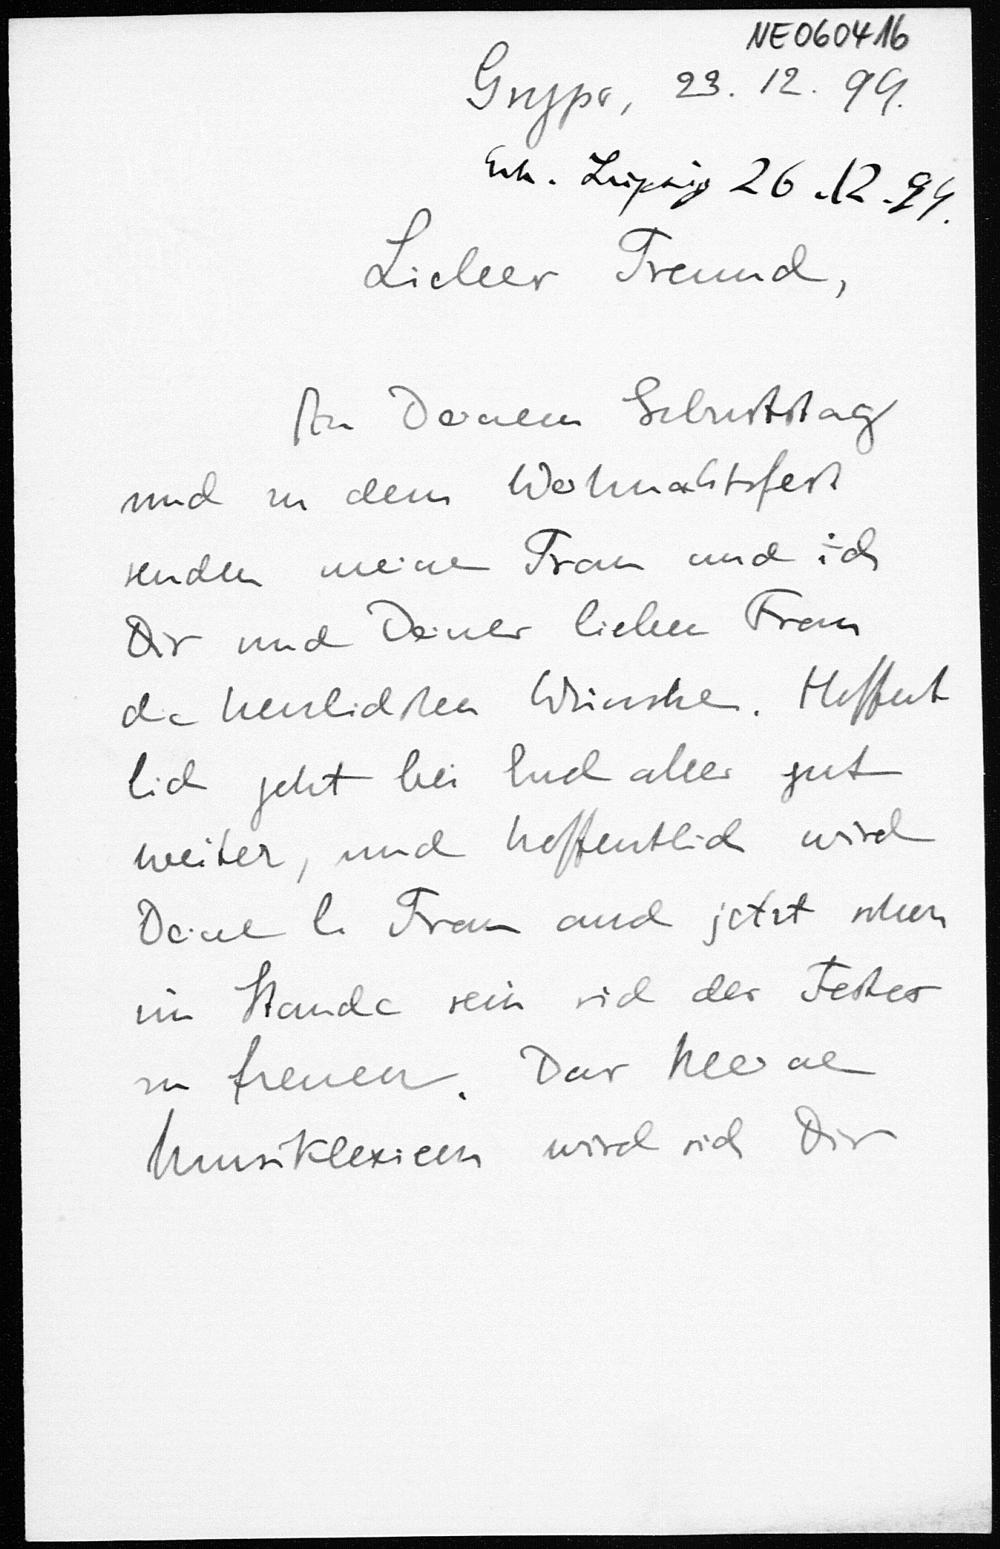 NE060416
Gryps, 23. 12. 99.
Erh. Leipzig 26.12.99.
Lieber Freund,
Zu Deinem Geburtstag
und zu dem Weihnachtsfest
senden meine Frau und ich
Dir und Deiner lieben Frau
die herzlichsten Wünsche. Hoffent
lich geht bei Euch alles gut
weiter, und hoffentlich wird
Deine l. Frau auch jetzt schon
im Stande sein sich des Festes
zu freuen. Das kleine
Musiklexicon wird sich Dir